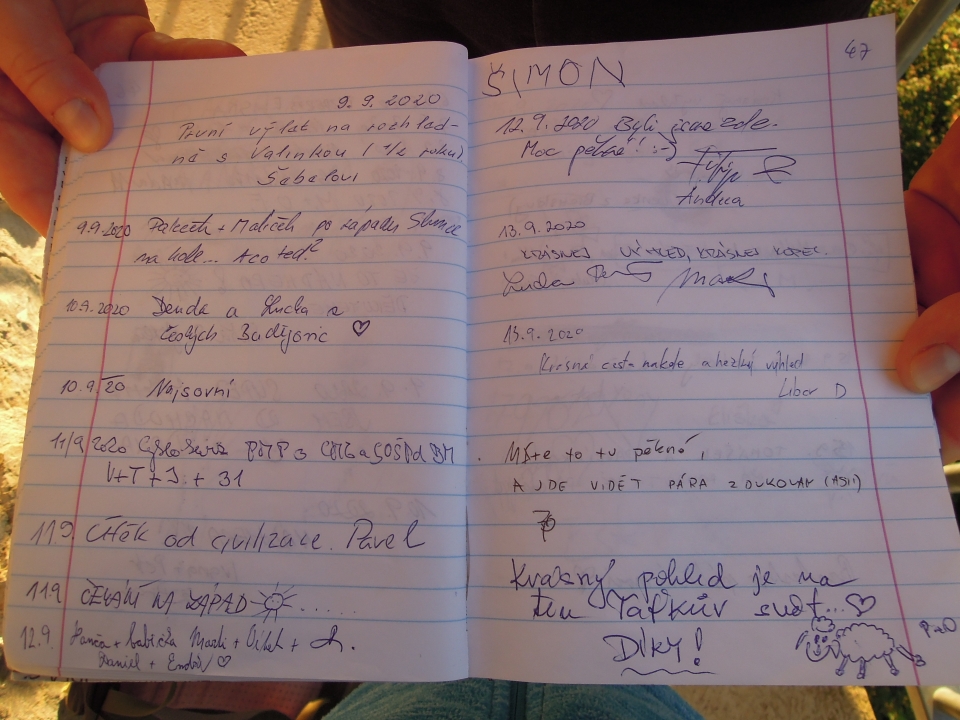 9.9.2020
První výlet na rozhled-
nu s Valinkou (1/2 roku)
Šebelovi
9.9.2020 + Mařiček po západu Slunce
na kole... A co teď?
10.9.2020 Denda a Lucka z
Českých Budějovic ♡
10.9.20 Najsovní
11/9 2020
V+T+J + 31
11.9. Útěk od civilizace. Pavel
11.9. ČEKÁNÍ NA ZÁPAD ......
12.9. Hanča + babička + +
Daniel + ♡
47
ŠIMON
12.9.2020 Byli jsme zde.
Moc pěkné! :-)
Filip
Andrea
13.9.2020
KRÁSNEJ VÝHLED, KRÁSNEJ KOPEC.
Luda
13.9.2020
Krásná cesta na kole a hezký výhled
Libor D
Máte to tu pěkné,
A JDE VIDĚT PÁRA Z DUKOVAN (ASI)
Krásný pohled je na
ten Taťkův svět...♡
DÍKY!